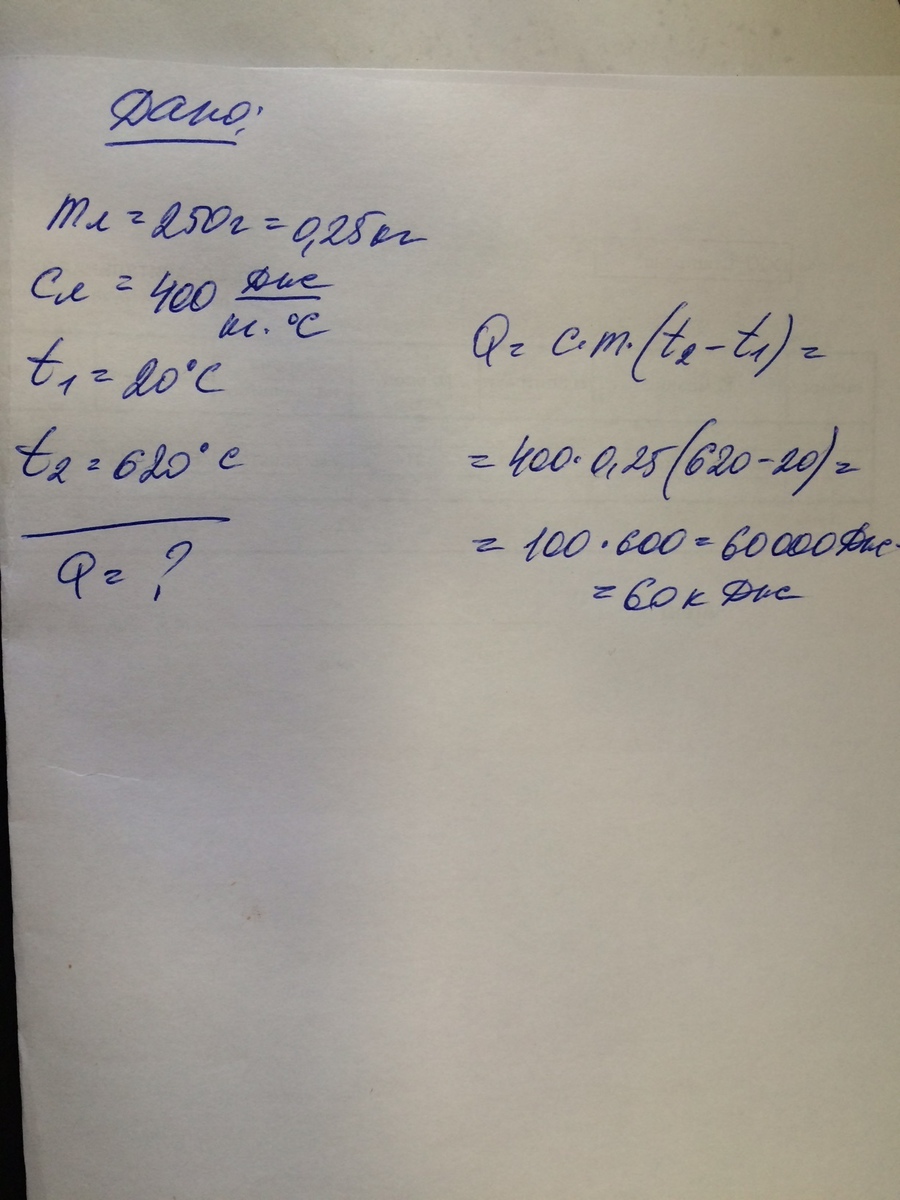 Дано:
mл = 250г = 0,25кг
Cл = 400 Дж/кг·°C
t1 = 20°C
t2 = 620°C
Q = ?
Q = c·m·(t2-t1) =
= 400·0,25(620-20) =
= 100·600 = 60000Дж=
= 60кДж